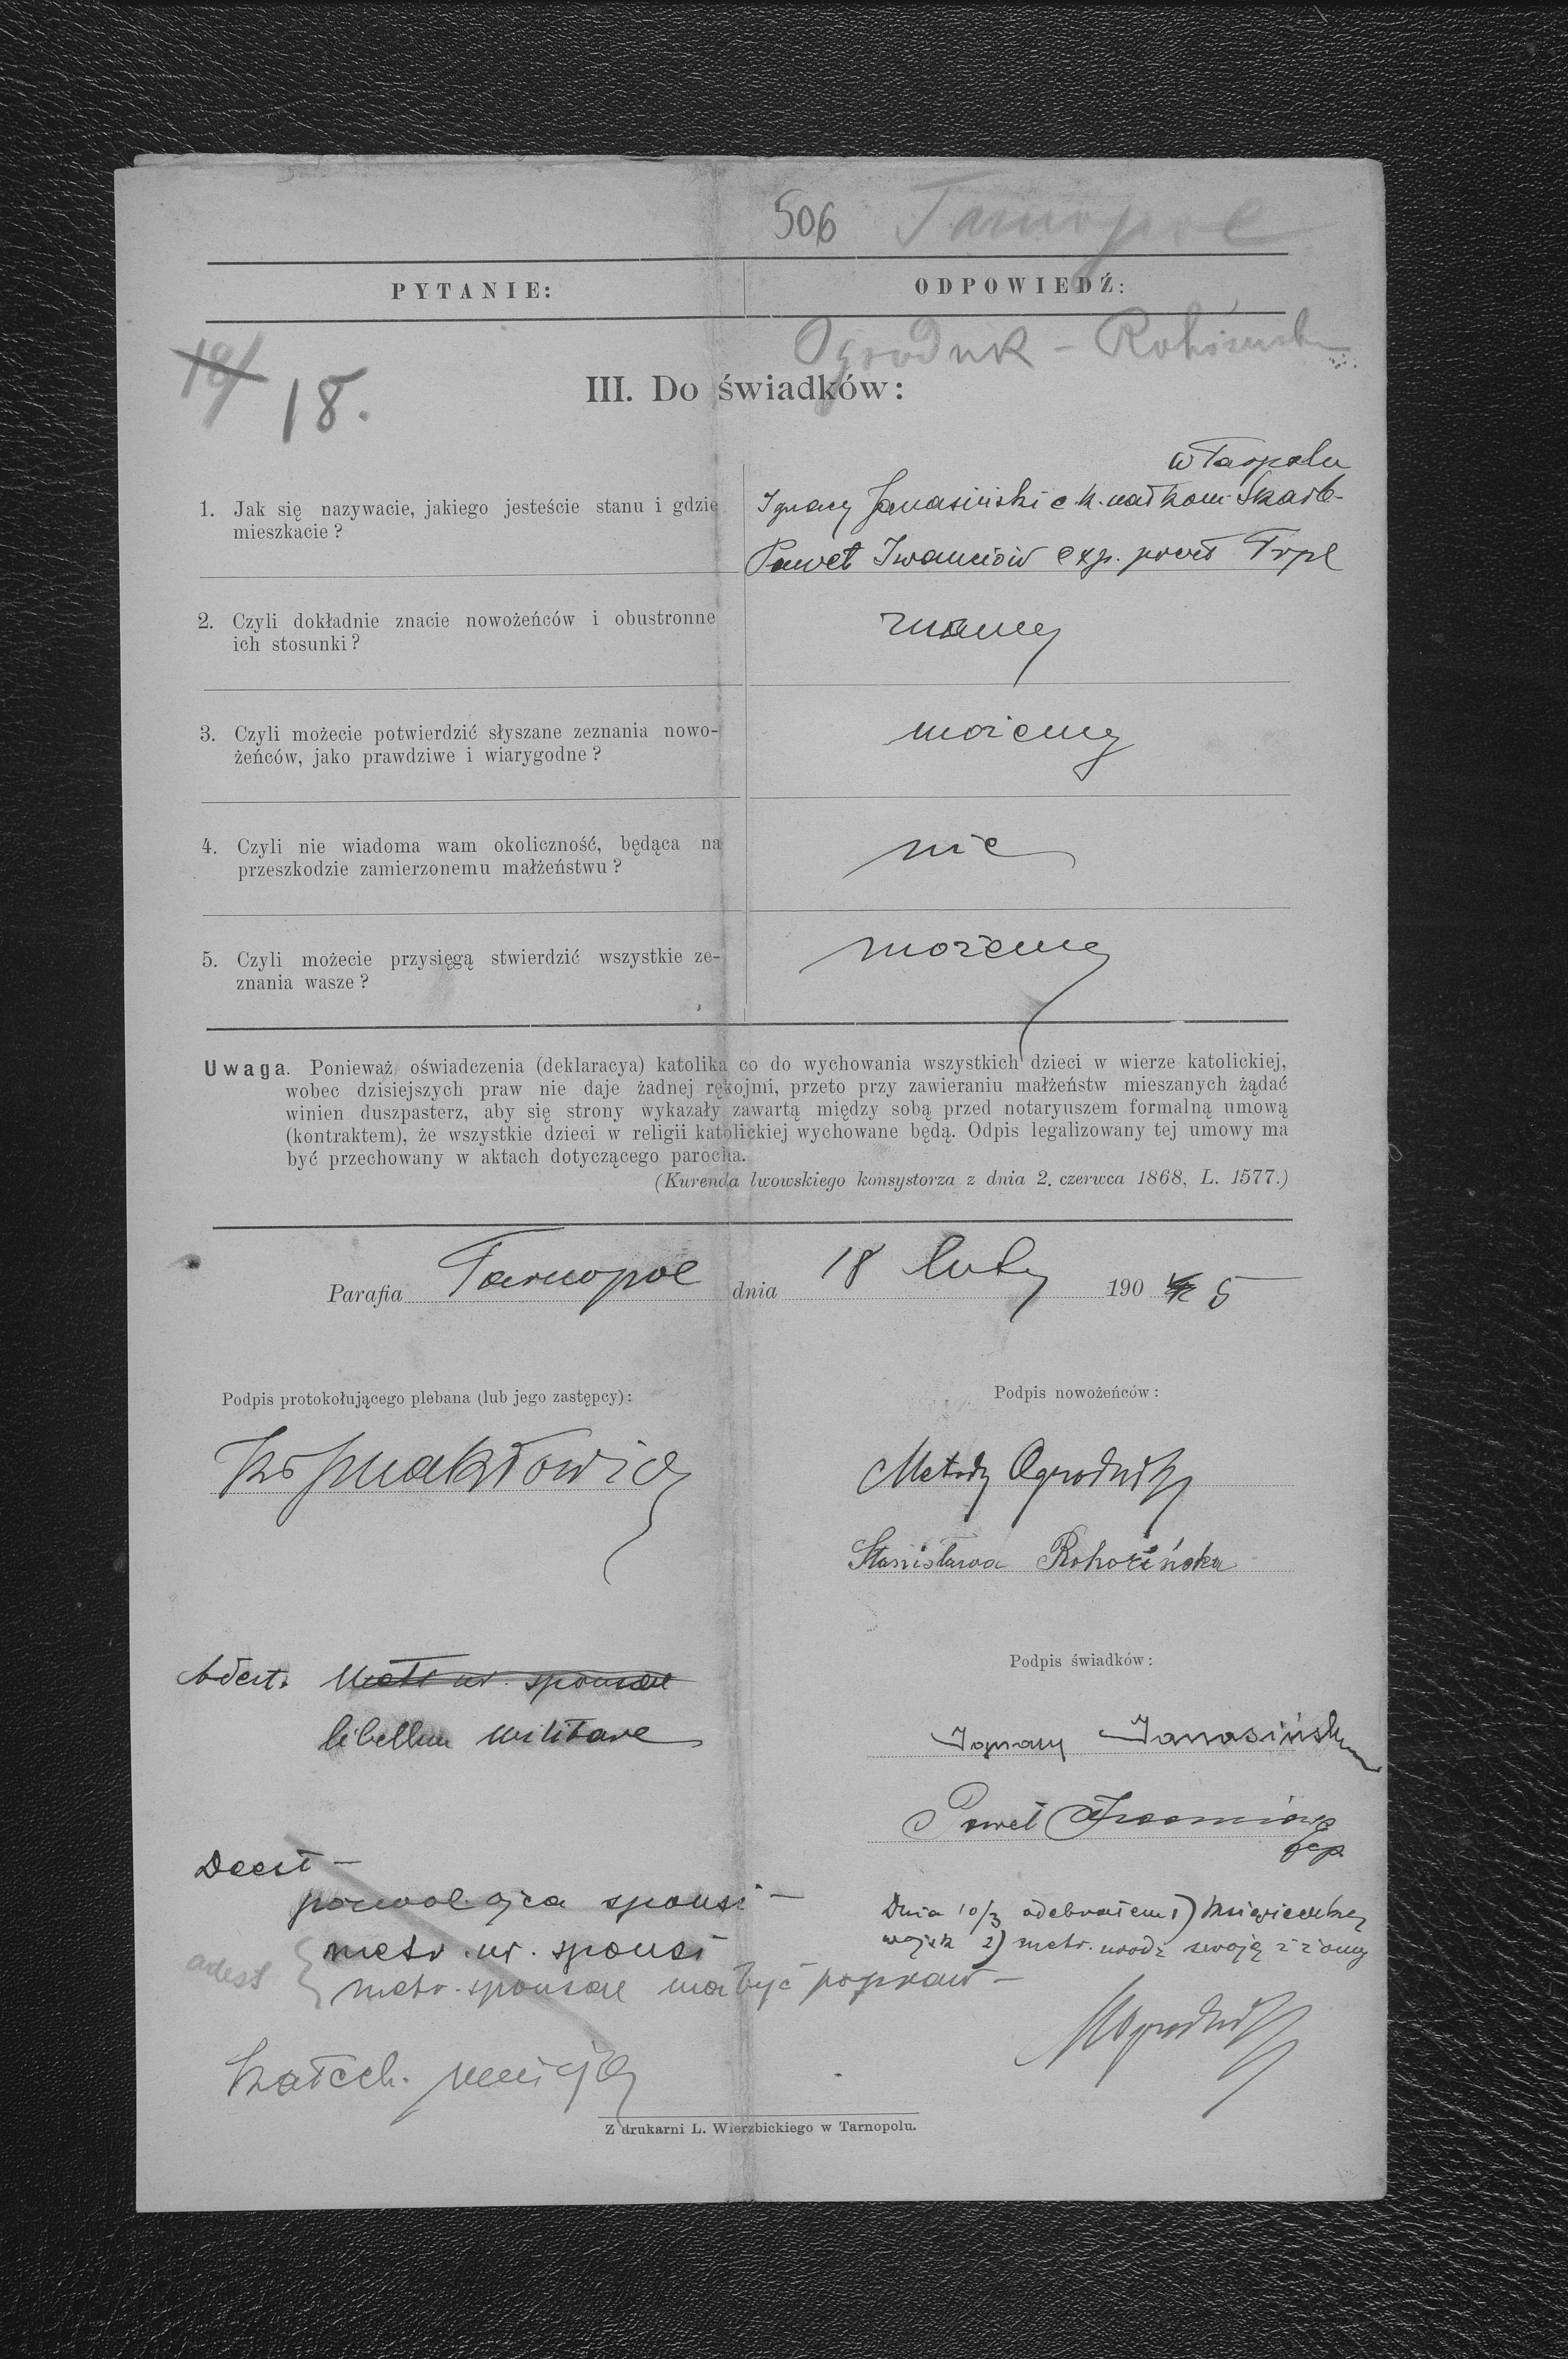 506 Tarnopol
PYTANIE: ODPOWIEDŹ:
Ogrodnik - Rohozinska
18. III. Do świadków:
w Tarpolu
1. Jak się nazywacie, jakiego jesteście stanu i gdzie
mieszkacie?
Ignacy Janasiński c k. nadkom. Skarb-
Paweł Iwanciów exp. poczt Trpl
2. Czyli dokładnie znacie nowożeńców i obustronne
ich stosunki?
znamy
3. Czyli możecie potwierdzić słyszane zeznania nowo-
żeńców, jako prawdziwe i wiarygodne?
możemy
4. Czyli nie wiadoma wam okoliczność, będąca na
przeszkodzie zamierzonemu małżeństwu?
nie
5. Czyli możecie przysięgą stwierdzić wszystkie ze-
znania wasze?
możemy
Uwaga. Ponieważ oświadczenia (deklaracya) katolika co do wychowania wszystkich dzieci w wierze katolickiej,
wobec dzisiejszych praw nie daje żadnej rękojmi, przeto przy zawieraniu małżeństw mieszanych żądać
winien duszpasterz, aby się strony wykazały zawartą między sobą przed notaryuszem formalną umową
(kontraktem), że wszystkie dzieci w religii katolickiej wychowane będą. Odpis legalizowany tej umowy ma
być przechowany w aktach dotyczącego parocha.
(Kurenda lwowskiego konsystorza z dnia 2. czerwca 1868, L. 1577.)
Parafia Tarnopol dnia 18 luty 190 5
Podpis protokołującego plebana (lub jego zastępcy):
Podpis nowożeńców:
Metody Ogrodnik
Stanisława Rohozińska
Podpis świadków:
Adest. Metr ur. sponsae
libellum militare
Ignacy Janasiński
Paweł
Deest -
pozwol. ojca sponsi -
metr. ur. sponsi
adest metr. sponsae ma być popraw -
Dnia 10/3 odebrałem 1) książeczkę
wojsk 2) metr. urodz swoją i żony
Ogrodnik
Z drukarni L. Wierzbickiego w Tarnopolu.